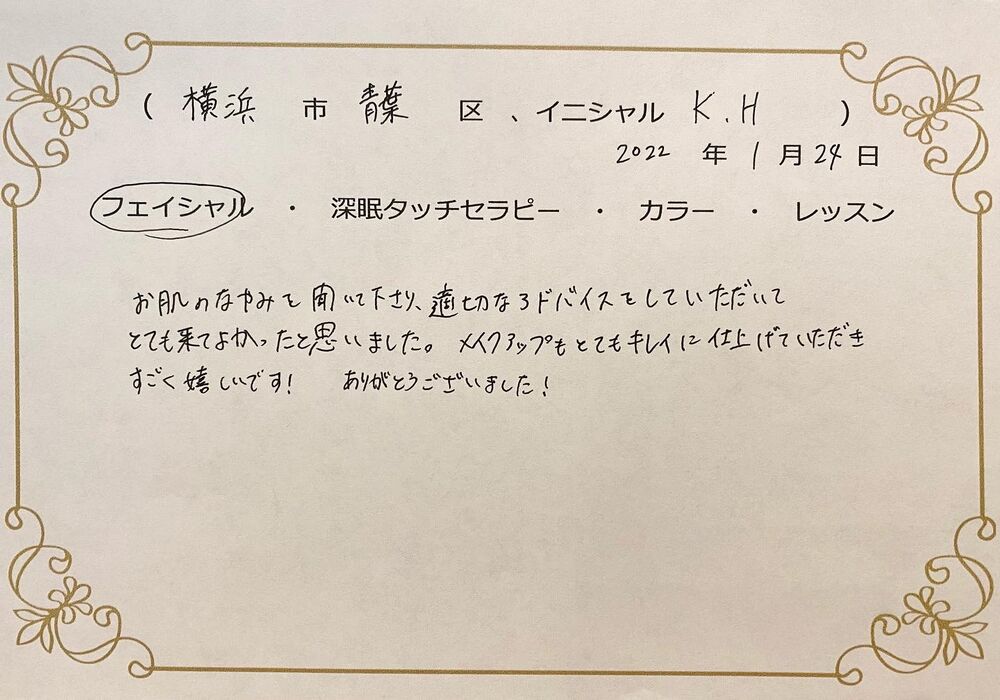 ( 横浜 市 青葉 区 、イニシャル K.H )
2022 年 1 月 24 日
フェイシャル ・ 深眠タッチセラピー ・ カラー ・ レッスン
お肌のなやみを聞いて下さり、適切なアドバイスをしていただいて
とても来てよかったと思いました。 メイクアップもとてもキレイに仕上げていただき
すごく嬉しいです! ありがとうございました!